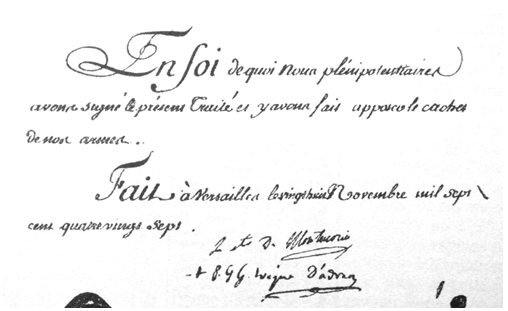 En foi de quoi Nous plénipotentiaires
avons signé le présent Traité et y avons fait apposer le cachet
de nos armes..
Fait à Versailles le vingt huit Novembre mil sept
cent quatre vingt sept.
L cte De Montmorin
+ P. G G. évêque D'adran